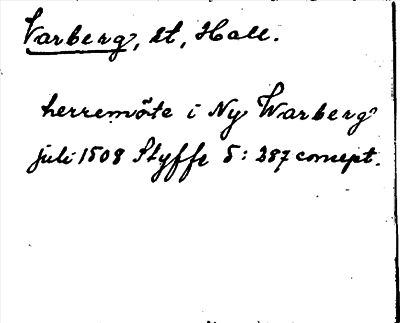 Varberg, st, Hall.
herremöte i Ny Warberg
juli 1508 Styffe 5: 287 concept.